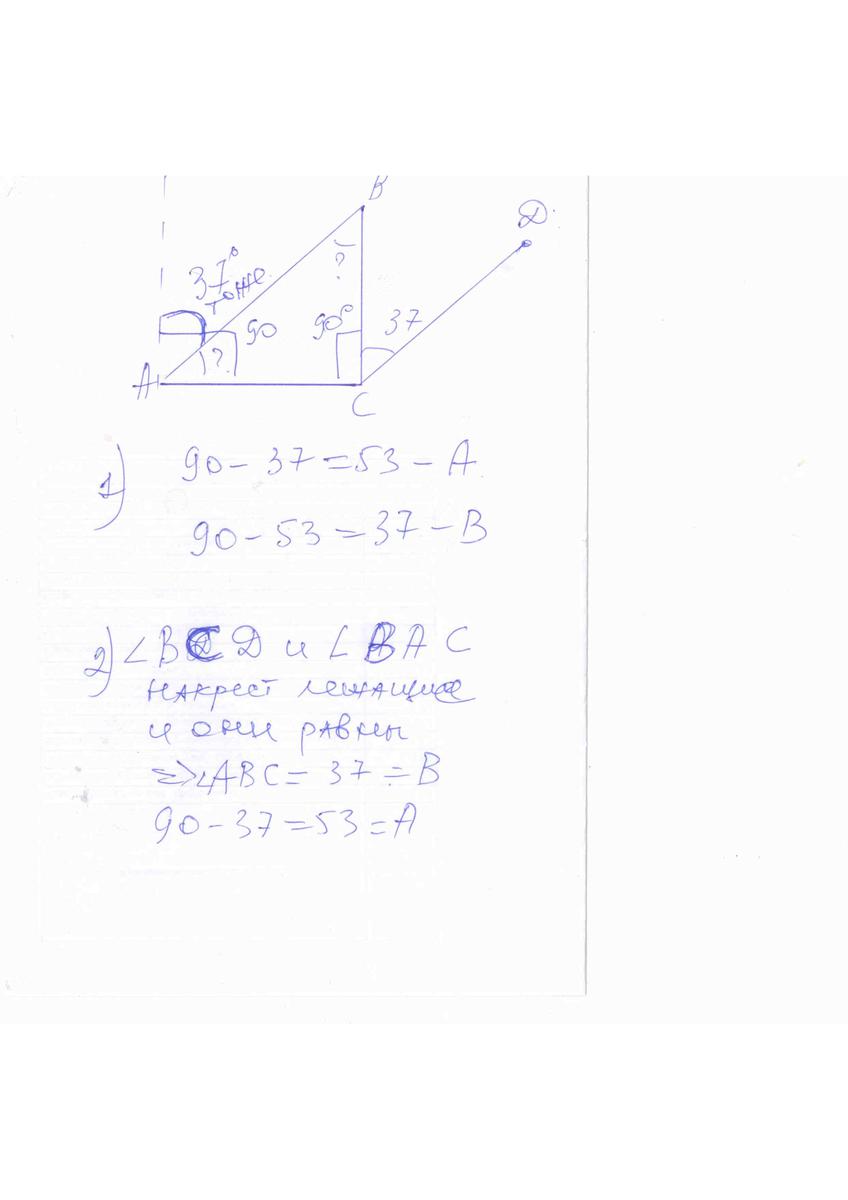 B
D
37°
тоже
?
90
90°
37
?
A
C
1) 90 - 37 = 53 - A
90 - 53 = 37 - B
2) ∠BCD и ∠BAC
накрест лежащие
и они равны
=> ∠ABC = 37 = B
90 - 37 = 53 = A